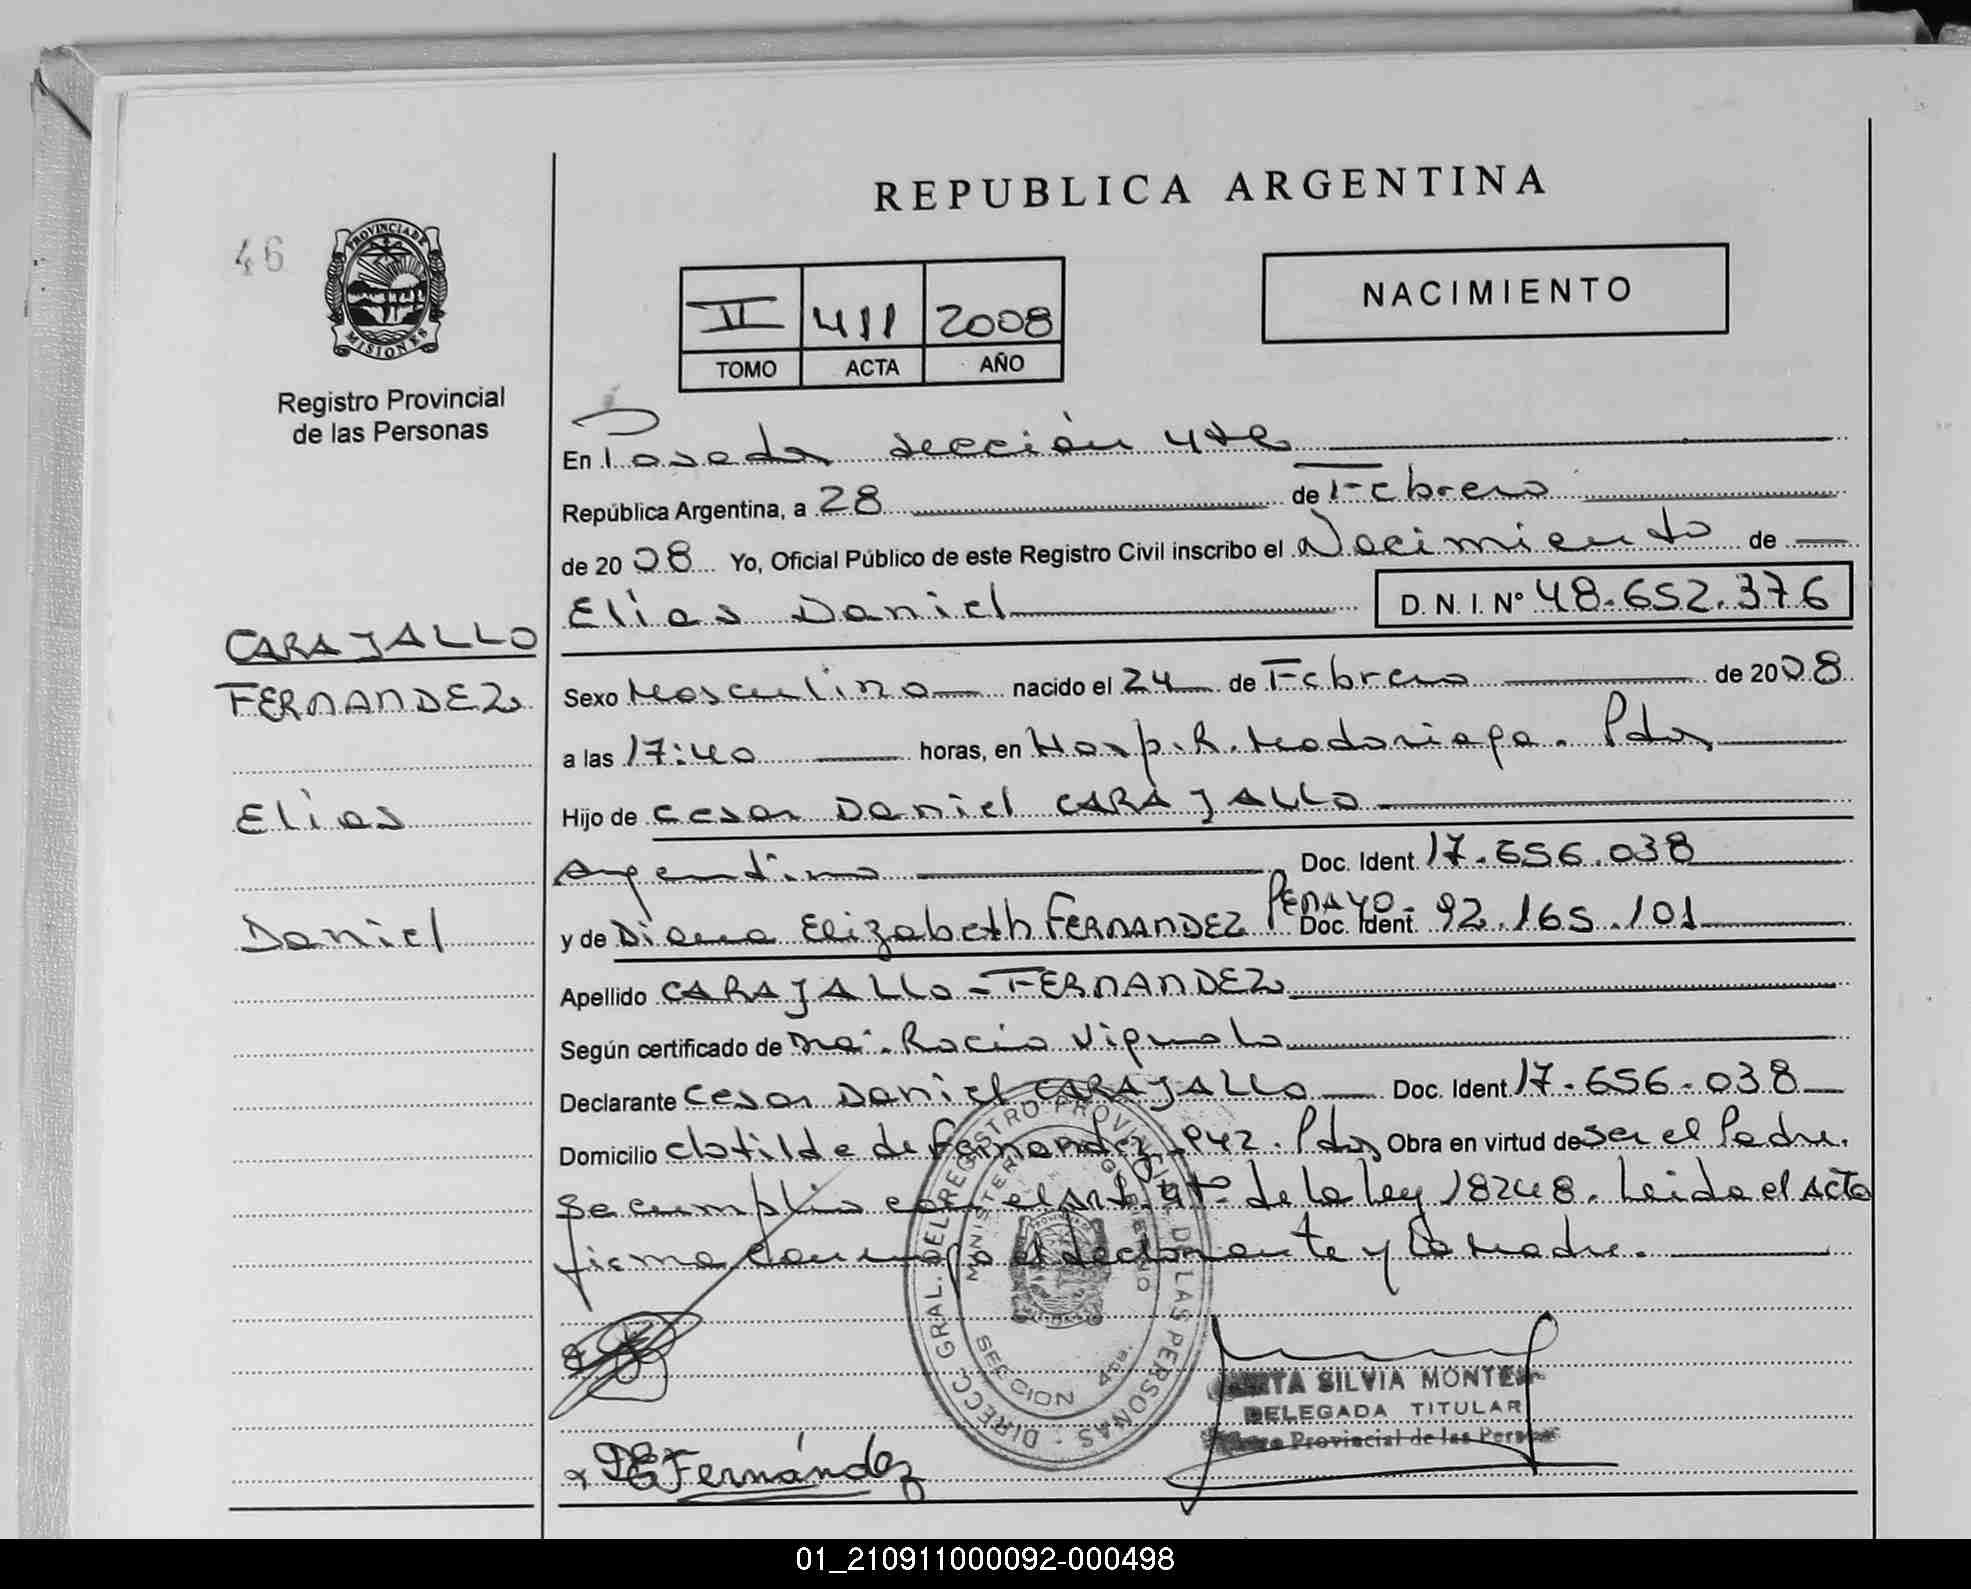 REPUBLICA ARGENTINA
46
PROVINCIA DE MISIONES
Registro Provincial
de las Personas
II 411 2008
TOMO ACTA AÑO
NACIMIENTO
En Posadas sección 4ta
República Argentina, a 28 de Febrero
de 2008 Yo, Oficial Público de este Registro Civil inscribo el Nacimiento de
Elias Daniel D. N. I. Nº 48.652.376
CARAJALLO
FERNANDEZ
Elias
Daniel
Sexo Masculino nacido el 24 de Febrero de 2008
a las 17:40 horas, en Hosp. R. Madariaga. Pdas
Hijo de Cesar Daniel CARAJALLO
Argentino Doc. Ident. 17.656.038
y de Diana Elizabeth FERNANDEZ PENAYO - Doc. Ident. 92.165.101
Apellido CARAJALLO - FERNANDEZ
Según certificado de Ma. Rocio Vignola
Declarante Cesar Daniel CARAJALLO Doc. Ident. 17.656.038
Domicilio Clotilde de Fernandez 942. Pdas Obra en virtud de ser el Padre.
Se cumplio con el art. 4to de la Ley 18248. Leida el Acta
firma conmigo el declarante y la Madre.
DIRECC. GRAL. DEL REGISTRO PROVINCIAL DE LAS PERSONAS
MINISTERIO GOBIERNO
SECCION 4ta.
SILVIA MONTE
DELEGADA TITULAR
Provincial de las Personas
DE Fernández
01_210911000092-000498